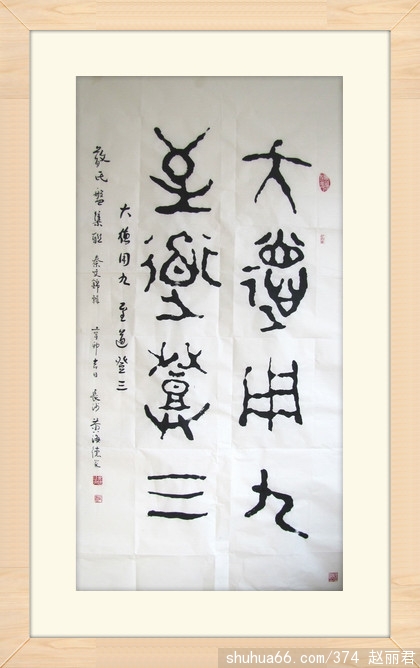 大德用九
至道登三
大德用九 至道登三
散氏盤集聯 秦文錦 辛卯吉日 長沙 黃海
shuhua66.com/374 赵丽君